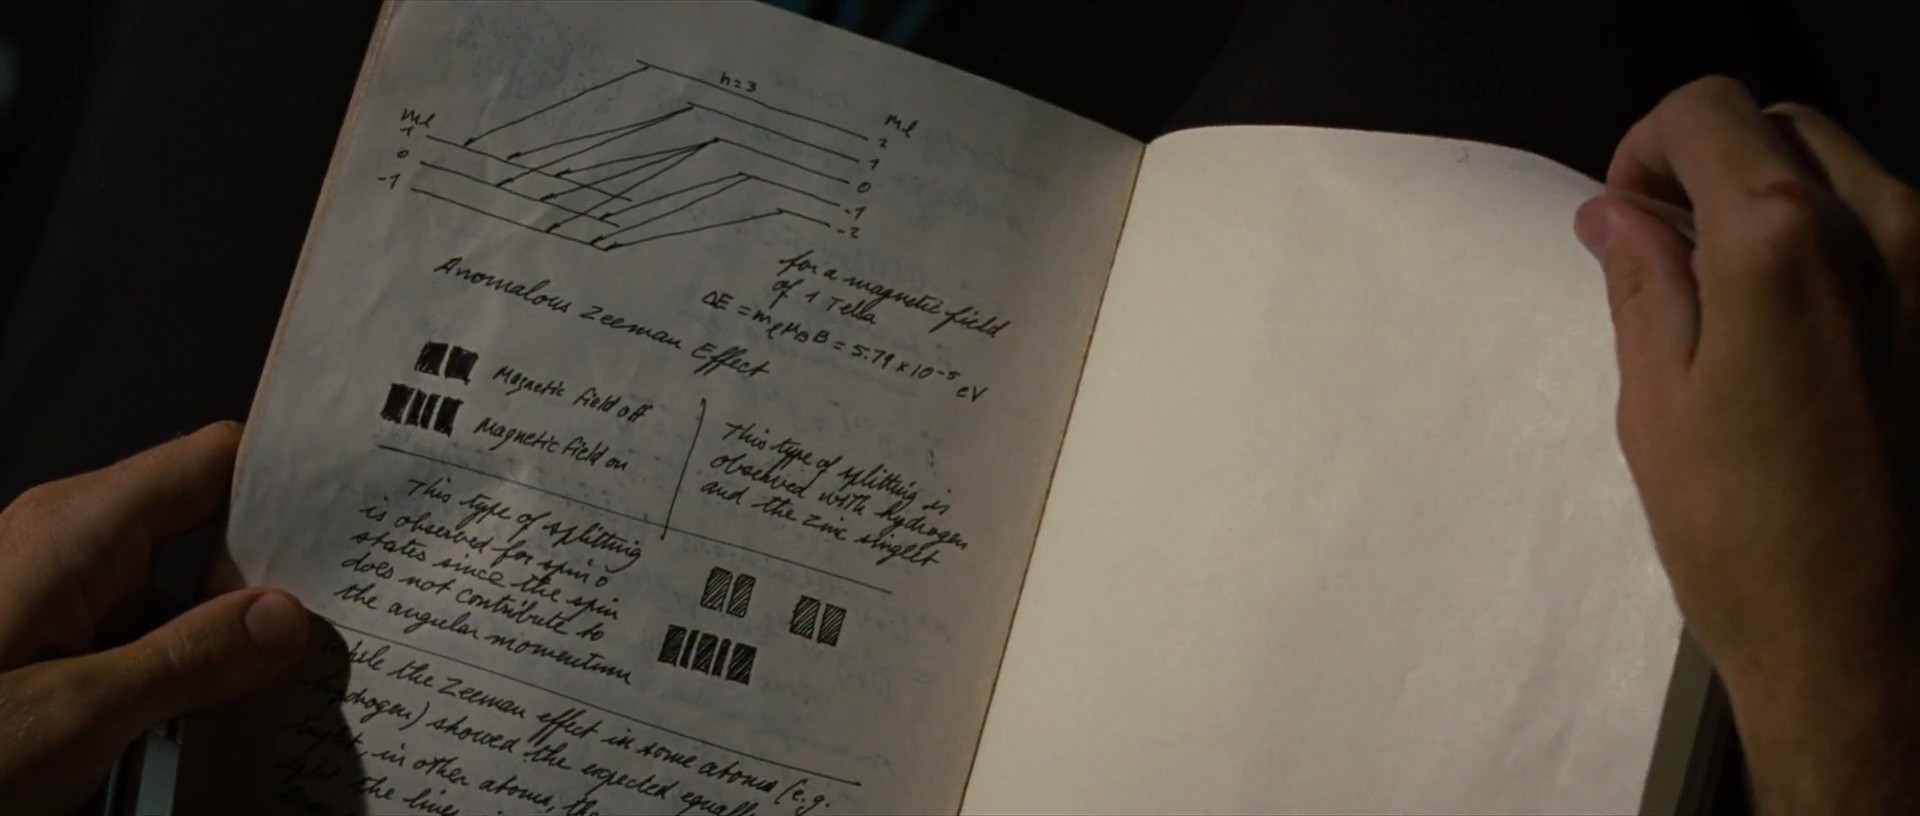 n=3
ml
ml
1
0
-1
2
1
0
-1
-2
for a magnetic field
of 1 Tesla
ΔE = mℓ μB B = 5.79 x 10⁻⁵ eV
Anomalous Zeeman Effect
Magnetic field off
Magnetic field on
This type of splitting is
observed with hydrogen
and the zinc singlet
This type of splitting
is observed for spin 0
states since the spin
does not contribute to
the angular momentum
while the Zeeman effect in some atoms (e.g.
hydrogen) showed the expected equally
in other atoms, the
the lines